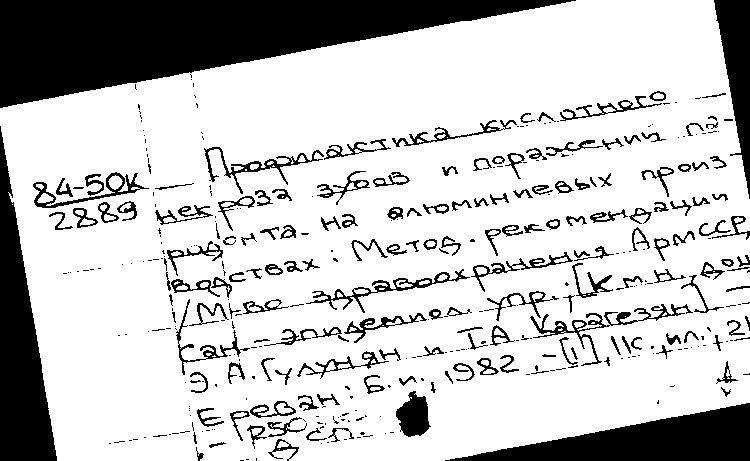 84-50к
2889
Профилактика кислотного
некроза зубов и поражений па-
родонта на алюминиевых произ-
водствах: Метод. рекомендации
/М-во здравоохранения АрмССР,
Сан-эпидемиол. упр.; [К.м.н., доц
Э.А. Гулунян и Т.А. Карагезян.] –
Ереван: Б.и., 1982. – [1], 11с., ил.; 21
. – 250
Дсп.